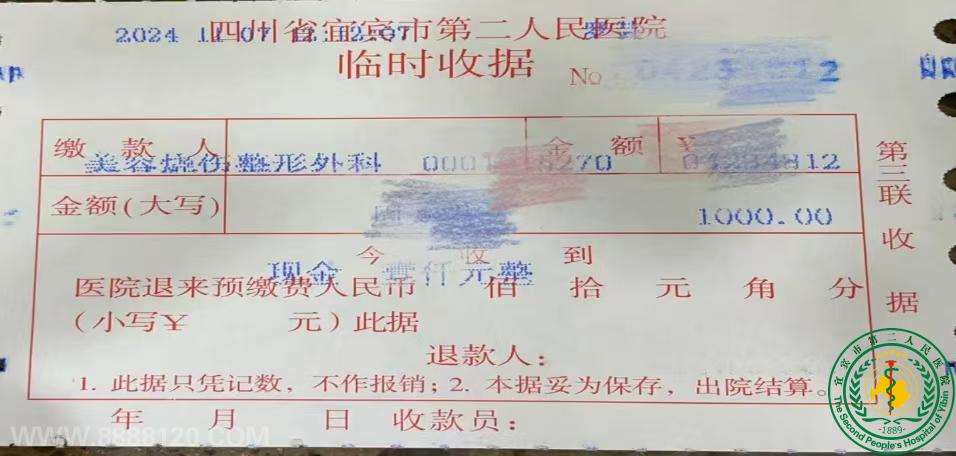 四川省宜宾市第二人民医院
2024 11 07
临时收据
No
缴款人 金额 ¥
美容烧伤整形外科 04234812
金额(大写) 1000.00
今收到
现金 壹仟元整
医院退来预缴费人民币 佰 拾 元 角 分
(小写¥ 元)此据
退款人:
1. 此据只凭记数,不作报销;2. 本据妥为保存,出院结算。
年 月 日 收款员:
第三联收据
WWW.8888120.COM
宜宾市第二人民医院
The Second People's Hospital of Yibin
-1889-